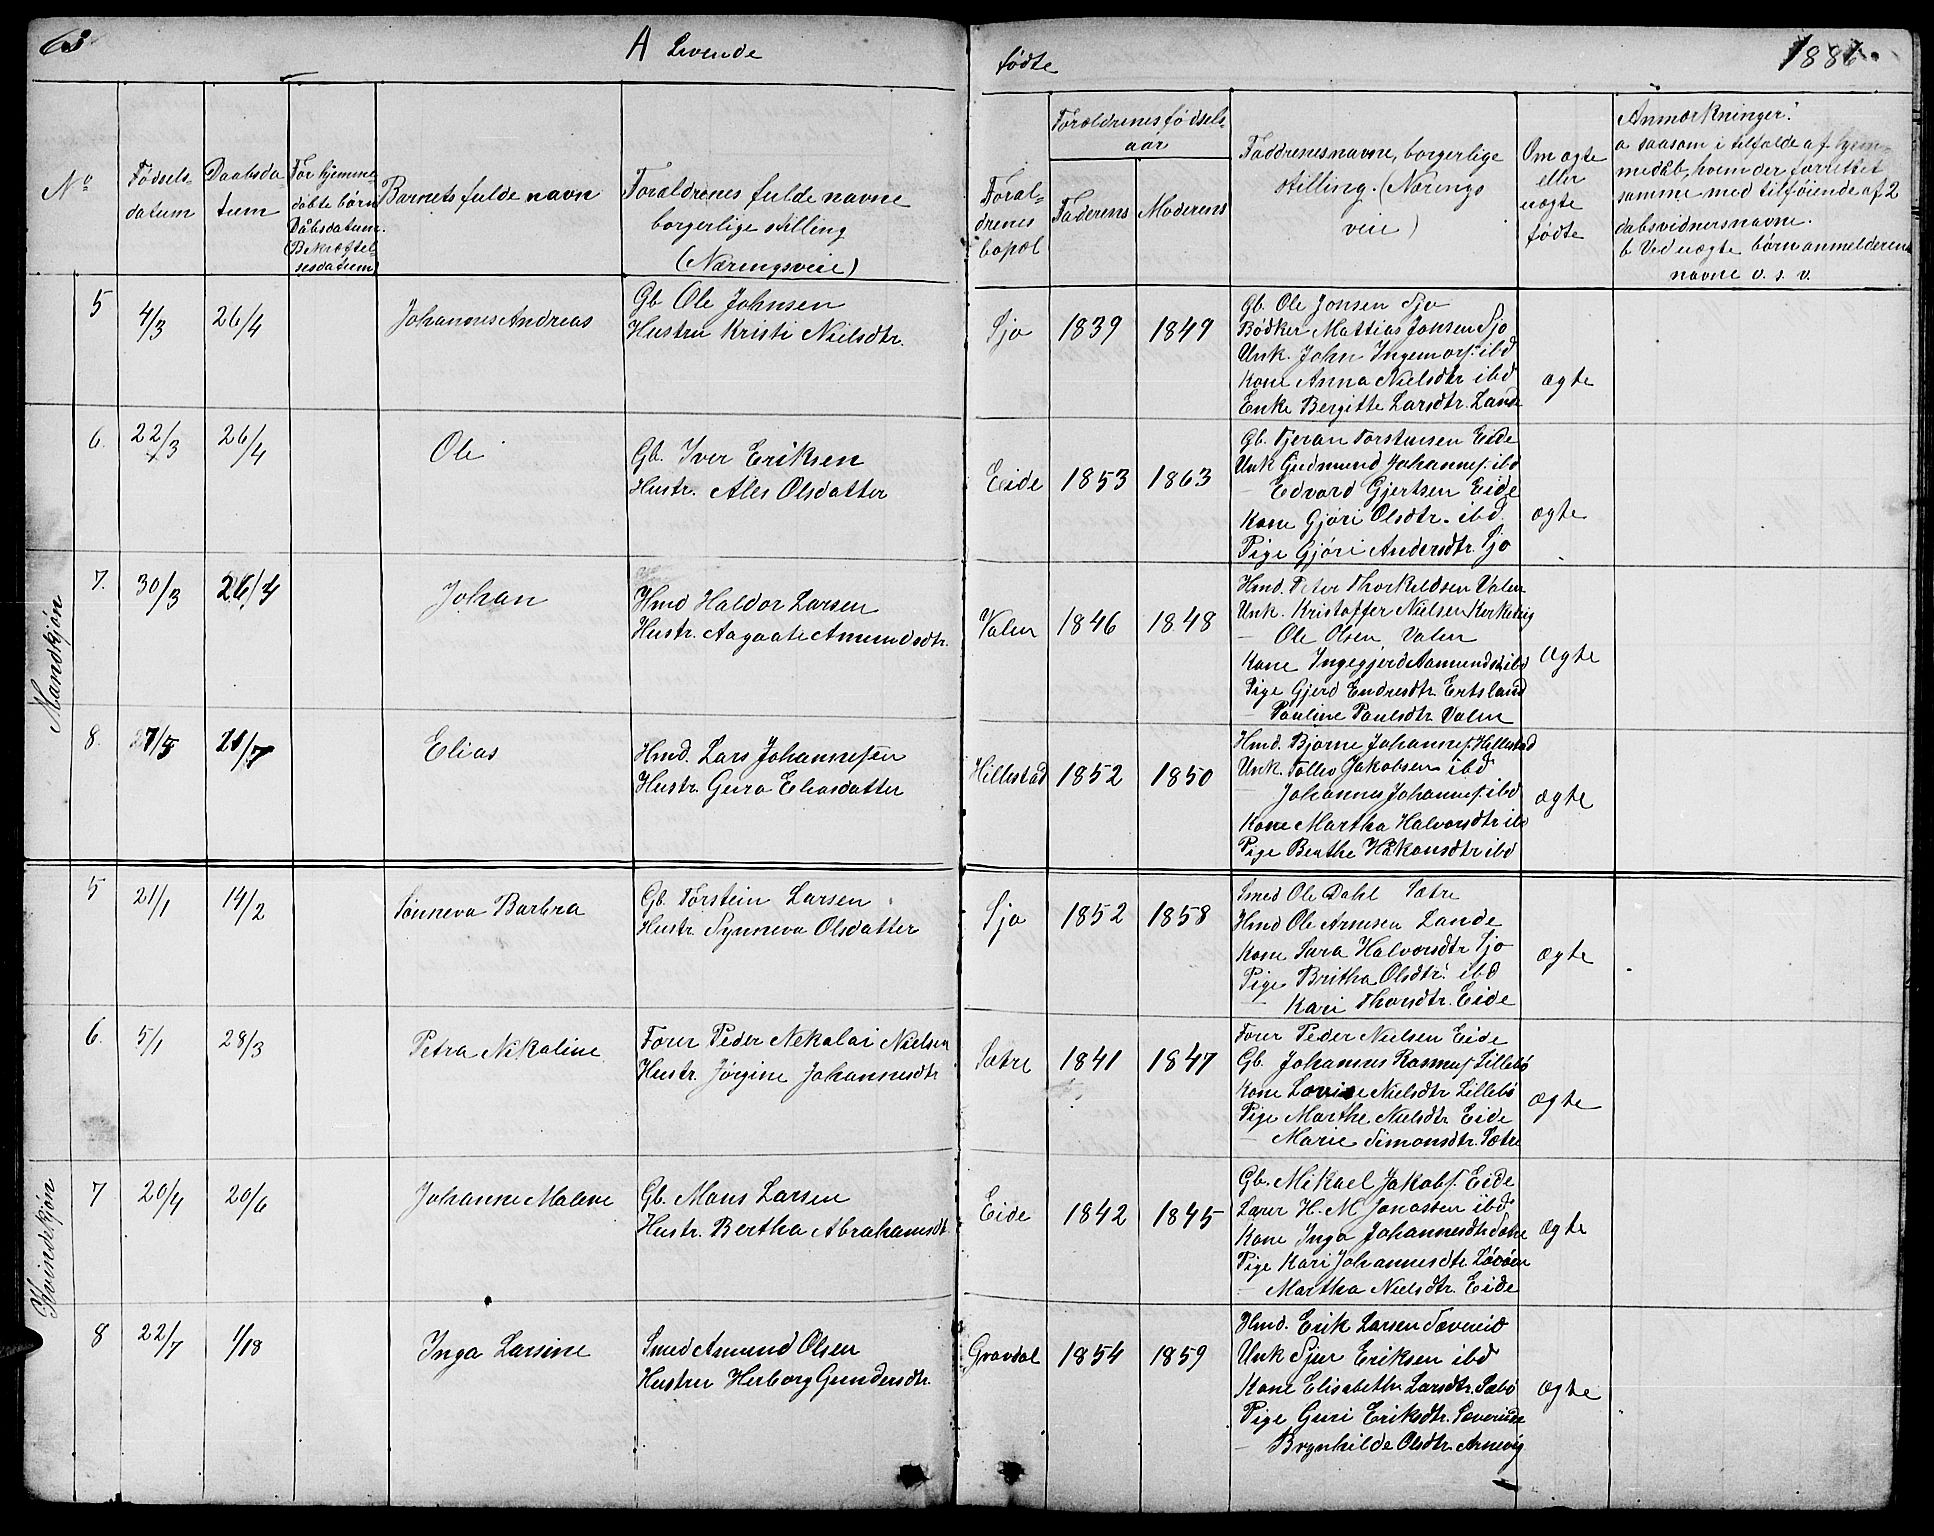 63
A Levende
fødte
1881.
No
Fødsels-
datum
Daabsda-
tum
Før hjemme-
døbte børn
Dåbsdatum.
(Bekræftel-
sesdatum)
Barnets fulde navn
Forældrenes fulde navne
borgerlige stilling
(Næringsveie)
Foræl-
drenes
bopæl
Forældrenes fødsels-
aar
Faderens
Moderens
Faddrenes navne, borgerlige
stilling. (Nærings
veie)
Om ægte
eller
uægte
fødte
Anmærkninger:
a saasom i tilfælde af hjem-
medåb, hvem der forrettet
samme med tilføiende af 2
dabsvidners navne.
b Ved uægte børn anmelderens
navne o. s. v.
Mandkjøn
5
4/3
26/4
Johannes Andreas
Gb. Ole Johnsen
Hustru Kristi Nielsdtr.
Sjo
1839
1849
Gb. Ole Jonsen Sjo
Bødker Mattias Jonsen Sjo
Unk. John Ingemarf. ibd
Kone Anna Nielsdtr ibd
Enke Bergitte Larsdtr. Lande
ægte
6.
22/3
26/4
Ole
Gb. Iver Eriksen
Hustr. Ales Olsdatter
Eide
1853
1863
Gb. Tjeran Torstensen Eide
Unk Gudmund Johannesf. ibd
— Edvard Gjertsen Eide
Kone Gjøri Olsdtr. ibd
Pige Gjøri Andersdtr. Sjo
ægte
7.
30/3
26/4
Johan
Hmd Haldor Larsen
Hustr. Aagaate Amundsdtr.
Valen
1846
1848
Hmd. Peter Thorkeldsen Valen
Unk. Kristoffer Nielsen
— Ole Olsen Valen
Kone Ingegjerd Aamundsdtr ibd
Pige Gjerd Endresdtr. Ertsland
— Pauline Paulsdtr. Valen
ægte
8.
21/7
Elias
Hmd. Lars Johannesen
Hustr. Guro Eliasdatter
Hillestad
1852
1850
Hmd. Bjorne Johannesf. Hillestad
Unk. Tollev Jakobsen ibd
— Johannes Johannesf. ibd
Kone Martha Halvorsdtr ibd
Pige Berthe Håkonsdtr ibd
ægte
Kvindekjøn
5
21/1
14/2
Sønneva Barbra
Gb. Torstein Larsen
Hustr. Synneva Olsdatter
Sjo
1852
1858
Smed Ole Dahl Sætre
Hmd Ole Arnesen Lande
Kone Sara Halvorsdtr Sjo
Pige Britha Olsdtr. ibd
— Kari Thorsdtr. Eide
ægte
6.
5/1
28/3
Petra Nikoline
Forer Peder Nekolai Nielsen
Hustr. Jørgine Johannesdtr
Sætre
1841
1847
Forer Peder Nielsen Eide
Gb. Johannes Rasmusf. Lillebø
Kone Lovise Nielsdtr Lillebø
Pige Marthe Nielsdtr. Eide
— Marie Simonsdtr. Sætre
ægte
7
20/4
20/6
Johanne Malene
Gb. Mons Larsen
Hustr. Bertha Abrahamsdt.
Eide
1842
1845
Gb. Mikael Jakobf. Eide
Lærer H. M. Jonassen ibd
Kone Inga Johannesdtr Sætre
Pige Kari Johannesdtr.
— Martha Nielsdtr. Eide
ægte
8
22/7
1/18
Inga Larsine
Smed Amund Olsen
Hustru Herborg Gundersdtr.
Gravdal
1854
1859
Hmd. Erik Larsen Sævereid
Unk Sjur Eriksen ibd
Kone Elisabeth Larsdtr. Sæbø
Pige Guri Eriksdtr. Sævereide
— Brynhilde Olsdtr. Arnevig
ægte